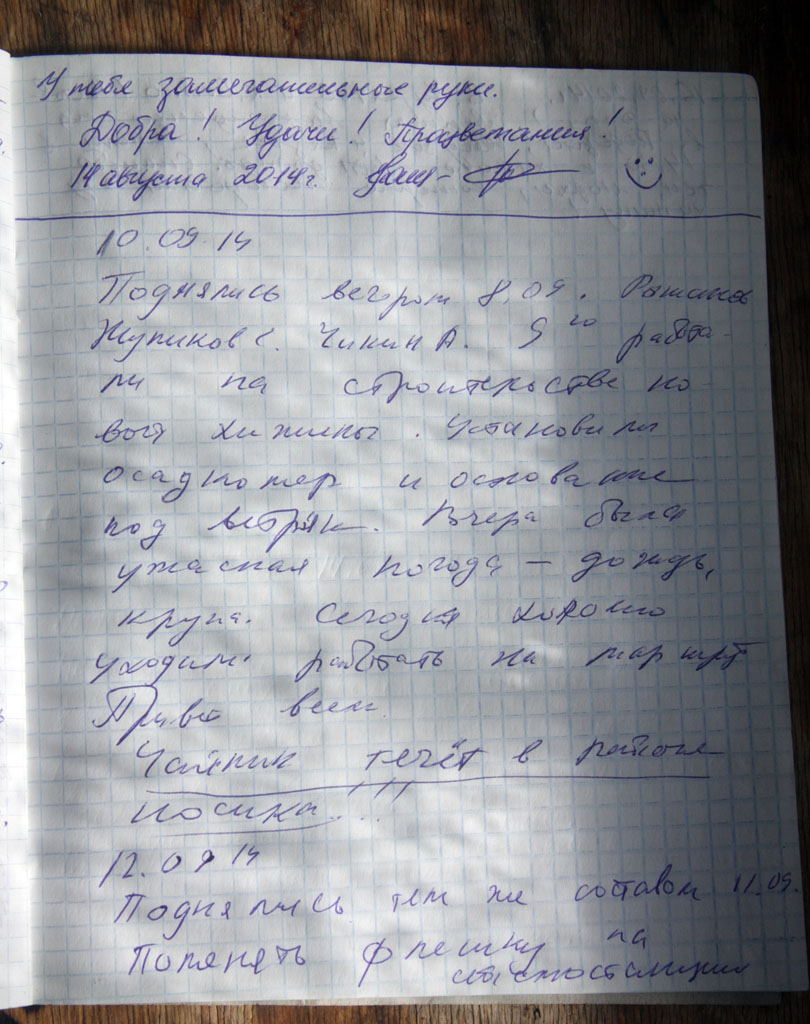 У тебя замечательные руки.
Добра! Удачи! Процветания!
14 августа 2014г.
10.09.14
Поднялись вечером 8.09. Романов
Жупиков С. Чикин А. 9го работа-
ли на строительстве но-
вой хижины. Установили
осадкомер и основание
под ветряк. Вчера была
ужасная погода – дождь,
крупа. Сегодня хорошо
уходим работать на маршрут
Привет всем
Чайник течёт в районе
носика!!!
12.09 14
Поднялись тем же составом 11.09.
Поменять флешку на